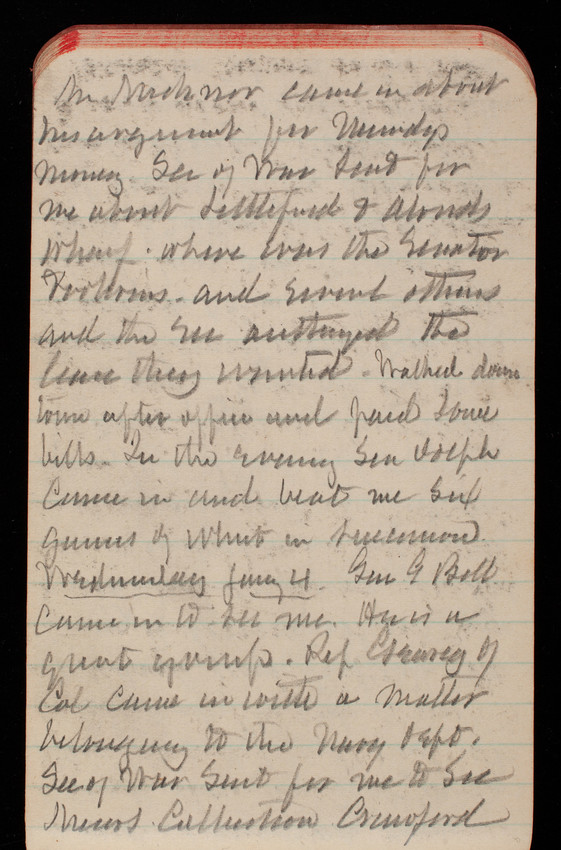 came in about
his argument for
money Sec of War Sent for
me about &
Wharf. where was the Senator
and others
and the Sec the
lease they wanted. Walked down
town after office and paid Some
bills. In the evening Gen Dolph
Came in and beat me Six
games of in succession
Wednesday Jany 4 Gen G Bell
Came in to see me. He is a
great . Rep of
Cal Came in with a matter
belonging to the Navy Dept.
Sec of War Sent for me to See
Crawford